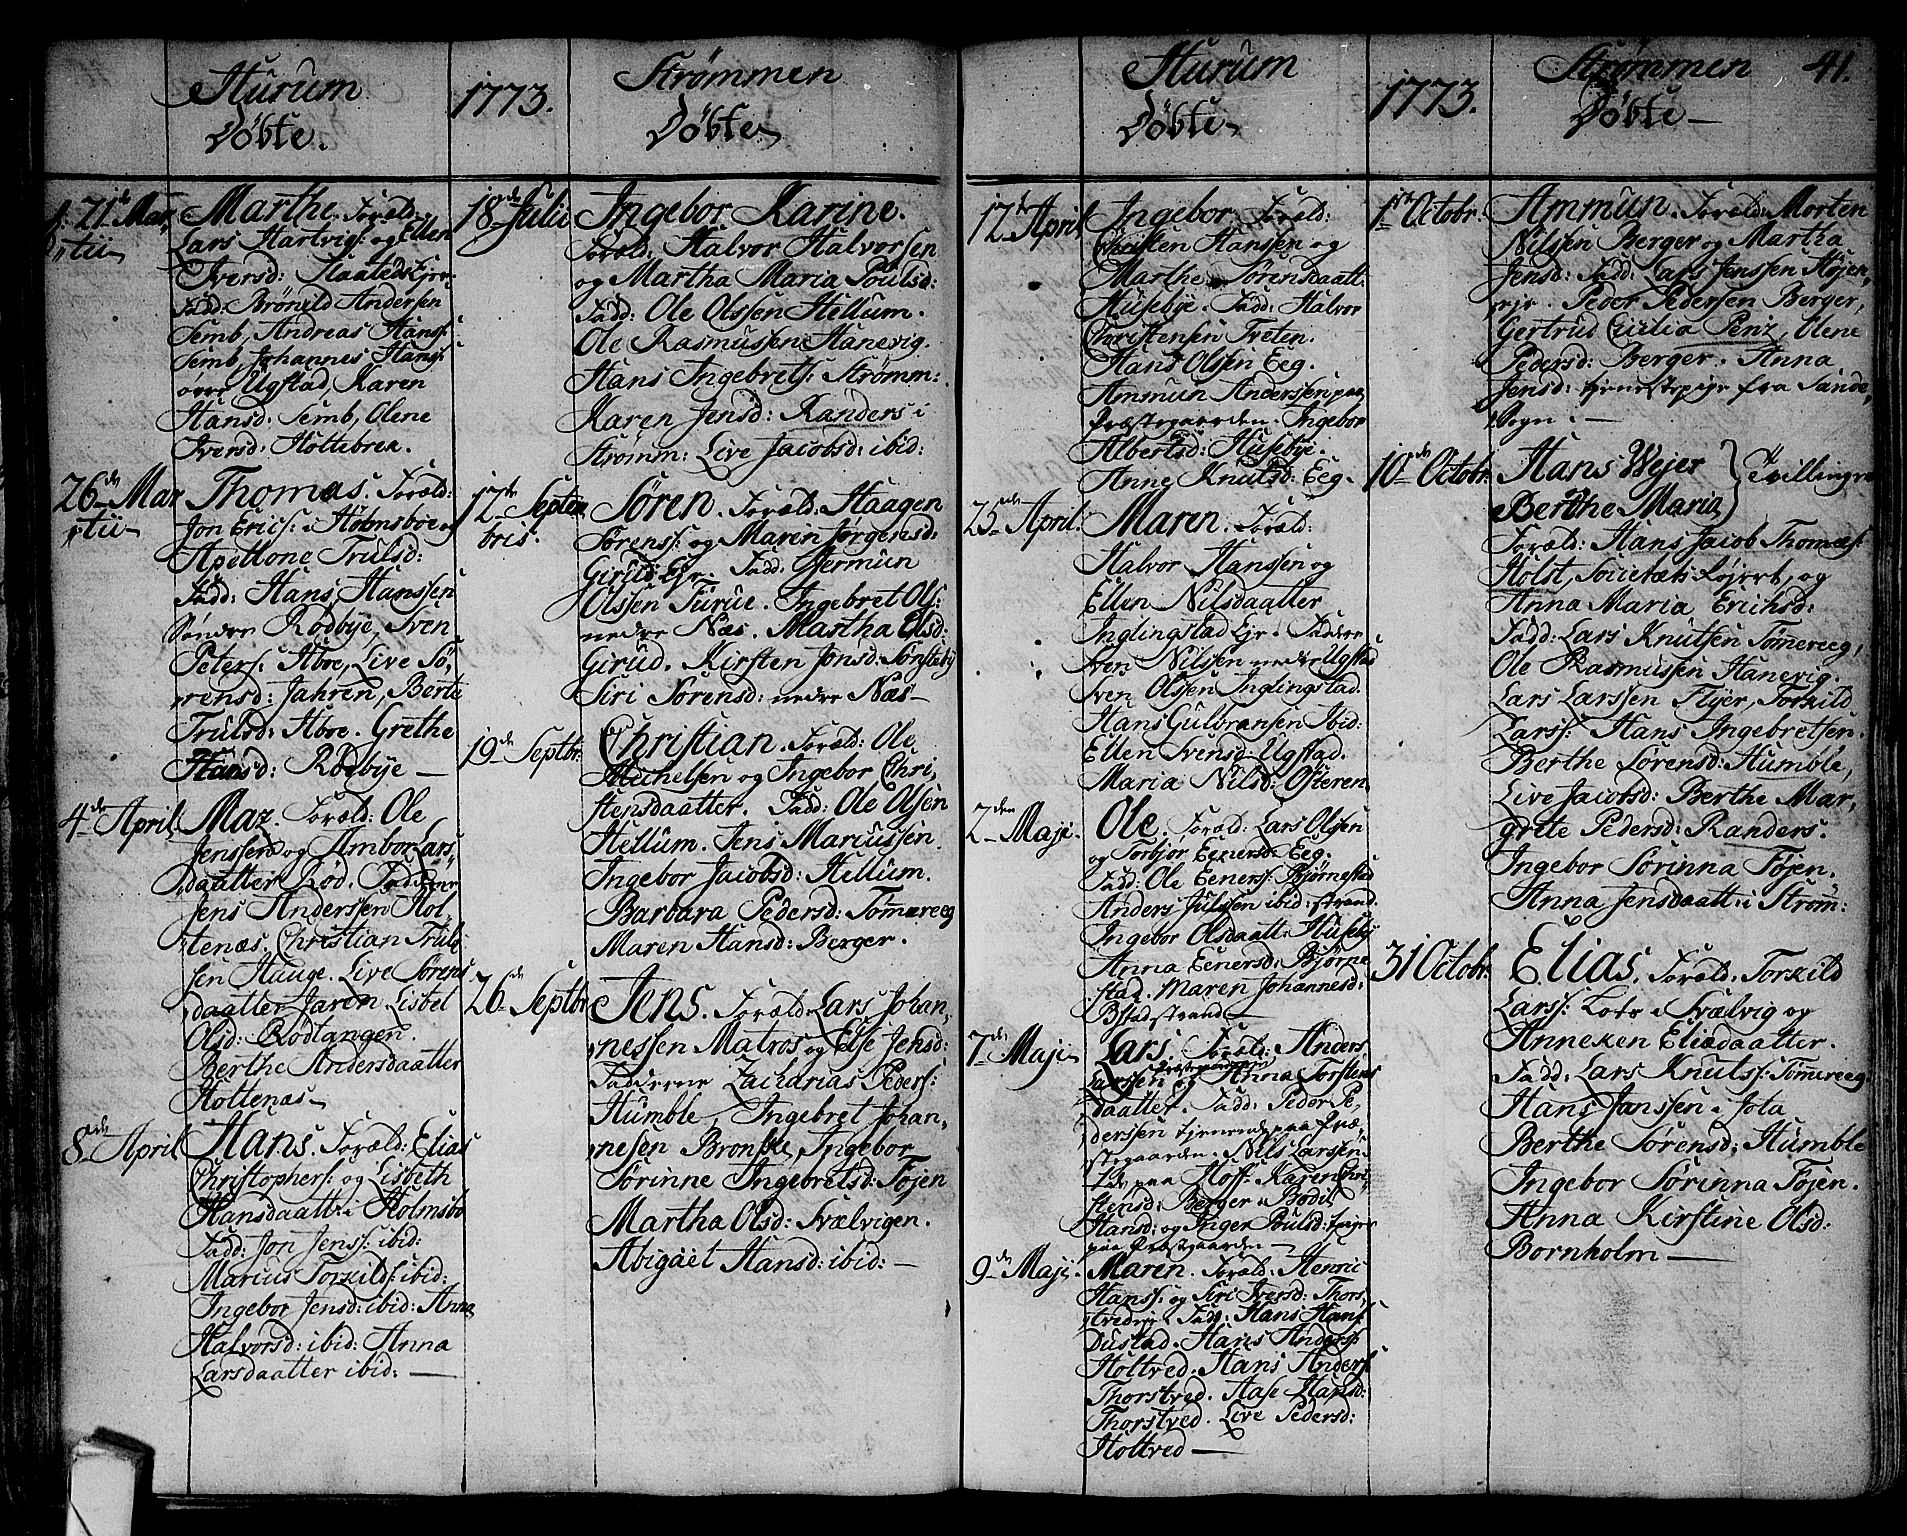 Hurum
Døbte.
1773.
Strømmen
Døbte
d: 21de Mar,
tii
Marthe. Foræld:
Lars Hartvigs: og Ellen
Iversd: Ejer.
Fadd: Brønild Andersen
Semb, Andreas Hanss:
Semb, Johannes Hans:
øvre Ugstad, Karen
Hansd: Semb, Olene
Iversd: Holtebrek.
26de Mar
tii
Thomas. Foræld:
Jon Erics: i Holmsboe og
Apellone Trulsd:
Fadd: Hans Hanssen
Søndre Rødbye, Sven
Peters: Aboe, Live Sø,
rensd: Jahren, Berte
Trulsd: Aboe. Grethe
Hansd: Rødbye —
4de April
Maz. Foræld: Ole
Jenssen og Ambor Lars,
daatter Rød. Fadderne
Jens Anderssen Hol,
tenæs. Christian Truls
sen Hauge. Live Sørens
daatter Jaren Lisbet
Olsd: Rødtangen.
Berthe Andersdaatter
Holtenæs
8de April
Hans. Foræld: Elias
Christophers: og Lisbeth
Hansdaatt: i Holmsbo
Fadd: Jon Jenss: ibid:
Marius Torkilds: ibid:
Ingebor Jensd: ibid: Anna
Halvorsd: ibid: Anna
Larsdaatter ibid: —
18de Julii
Ingebor Karine.
Foræld: Halvor Halvorsen
og Martha Maria Poulsd:
Fadd: Ole Olssen Hellum.
Ole Rasmussen Hanevig.
Hans Ingebrets: Strømm:
Karen Jensd: Randers i
Strømm: Live Jacobsd: ibid:
12te Septem
bris.
Søren. Foræld: Haagen
Sørenss: og Maren Jørgensd:
Girud Ejr. Fadd: Germun
Olssen Furue. Ingebret Ols:
nedre Næs. Martha Olsd:
Girud. Kirsten Jonsd: Sønsteby
Siri Sørensd: nedre Næs —
19de Septbr:
Christian. Foræld: Ole
Michelsen og Ingebor Chri,
stensdaatter. Fadd: Ole Olsen
Hellum. Jens Mariussen.
Ingebor Jacobsd: Hellum.
Barbara Pedersd: Tømereeg
Maren Hansd: Berger.
26de Septbr
Jens. Foræld: Lars Johan,
nessen Matros og Else Jensd:
Fadderne Zacharias Peders:
Humble, Ingebret Johan,
nesen Bronstle, Ingebor
Sørinne Ingebretsd: Tøjen
Martha Olsd: Svælvigen.
Abigaël Hansd: ibid: —
Hurum
Døbte
1773.
Strømmen
Døbte —
41.
12te April
Ingebor. Foræld:
Christen Hanssen og
Marthe Sørensdaatt:
Husebye. Fadd: Halvor
Christensen Tveten.
Hans Olssen Eeg.
Ammun Anderssen paa
Præstegaarden. Ingebor
Albertsd: Husebye.
Anne Knutsd: Eeg.
25de April.
Maren. Foræld:
Halvor Hanssen og
Ellen Nilsdaatter
Inglingstad Ejr. Faddere
Sven Nilssen nedre Ugstad
Sven Olssen Inglingstad.
Hans Gulbransen Ibid:
Ellen Svensd: Ugstad.
Maria Nilsd: Østeren
2den Maji
Ole. Foræld: Lars Olssen
og Torbjor Eenersd: Eeg.
Fadd: Ole Eeners: Bjørnestad
Anders Julssen ibid: strand
Ingebor Olsdaatt: Huseby
Anna Eenersd: Bjørne
stad. Maren Johannesd:
Bstadstrand —
7de Maji
Lars. Foræld: Anders
Larssen og Præstegaarden Anna Torstens
daatter. Fadd: Peder Pe,
derssen tjenende paa Præ,
stegaarden. Nils Larssen
paa Hoff. Karen Chri
stensd: Berger. Bodil
Hansd: og Inger Poulsd: Piger
paa Præstgaarden —
9de Maji.
Maren. Foræld: Henric
Hanss: og Siri Iversd: Thors,
tvedrig. Fadd: Hans Hans:
Dustad. Hans Anderss:
Holtved. Hans Anders:
Thorstved. Aase Hansd:
Thorstved. Live Pedersd:
Holtved —
1ste Octobr.
Ammun. Foræld: Morten
Nilssen Berger og Martha
Jensd: Fadd: Lars Jenssen Højen
Peder Pedersen Berger,
Gertrud Cicilia Penz, Olene
Pedersd: Berger. Anna
Jensd: tjenestepige fra Sande,
Sogn: —
10de Octobr:
Hans Wejer
Berthe Maria
Tvillinger
Foræld: Hans Jacob Thomæs:
Holst, Societets: Løjert, og
Anna Maria Erichsd:
Fadd: Lars Knutsen Tømereeg,
Ole Rasmussen Hanevig.
Lars Larssen Flyer, Torkild
Larss: Hans Ingebretsen.
Berthe Sørensd: Humble,
Live Jacobsd: Berthe Mar,
grete Pedersd: Randers.
Ingebor Sørinna Tøjen.
Anna Jensdaatt: i Strøm:
31 Octobr.
Elias. Foræld: Torkild
Larss: Lots i Svælvig og
Anneken Eliædaatter.
Fadd: Lars Knuts: Tømereeg.
Hans Janssen i Jota
Berthe Sørensd: Humble
Ingebor Sørinna Tøjen.
Anna Kirstine Olsd:
Bornholm —